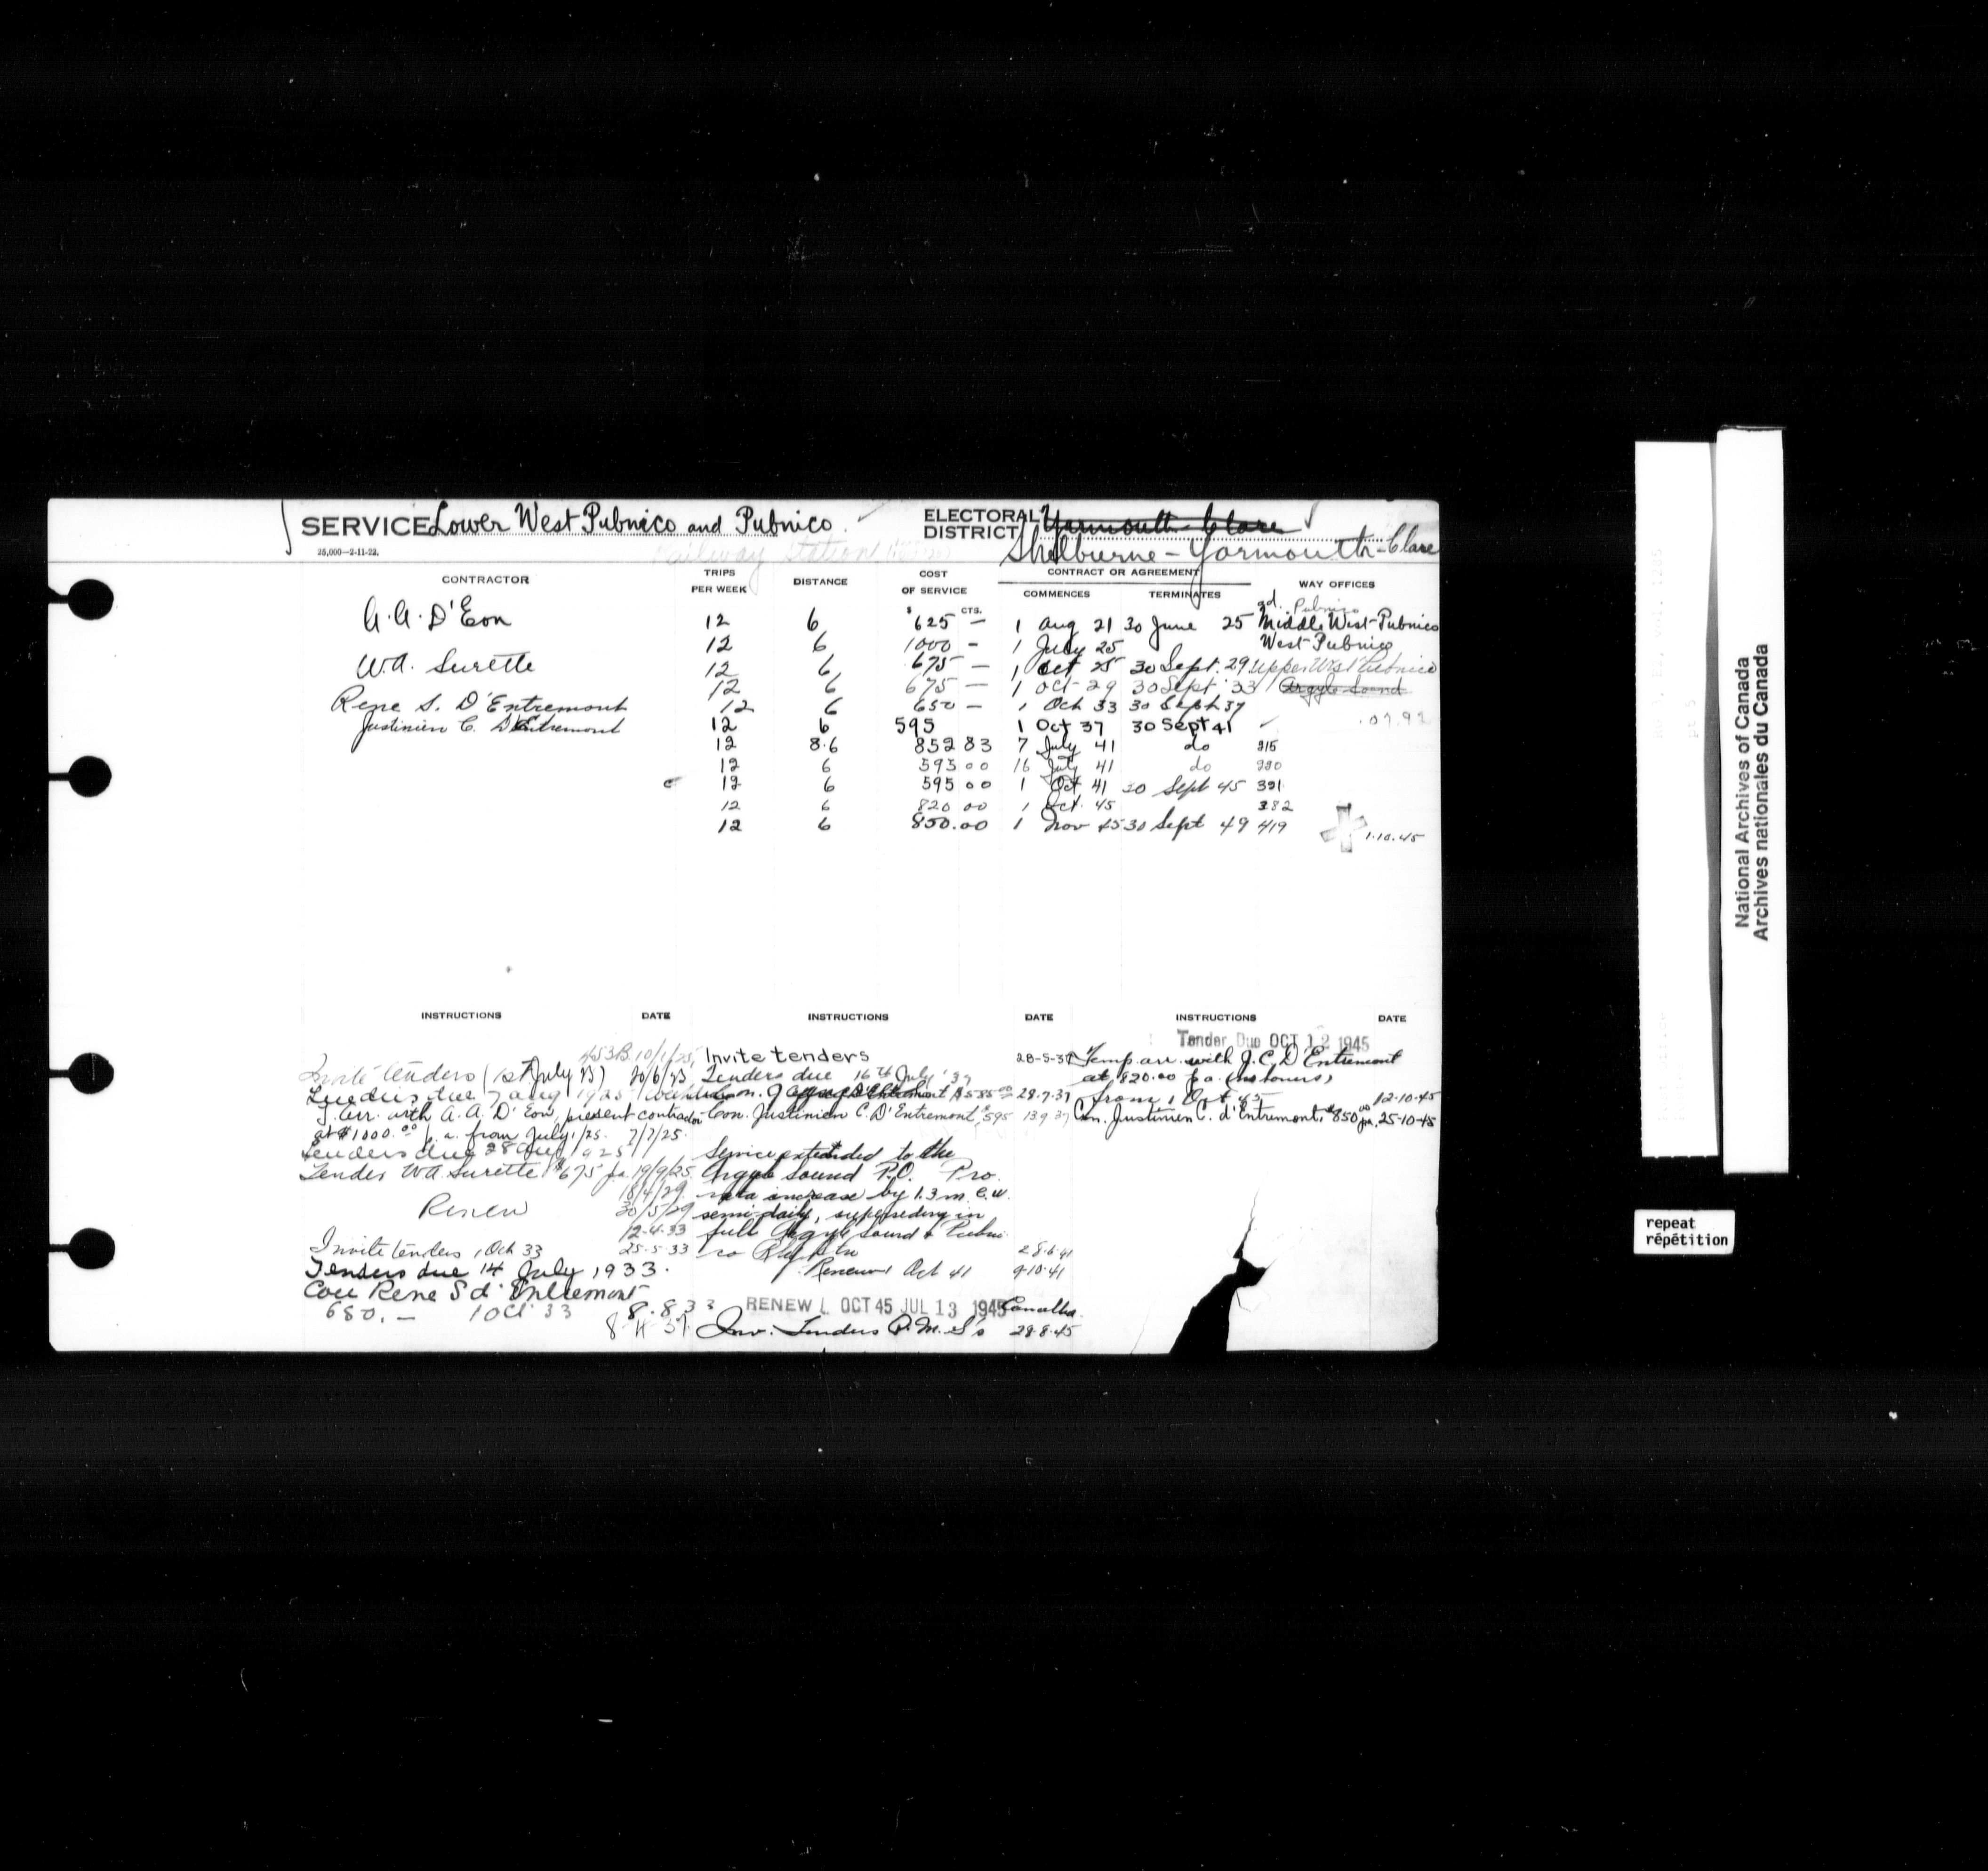 SERVICE Lower West Pubnico and Pubnico
Railway Station
25,000—2-11-22.
ELECTORAL DISTRICT Yarmouth-Clare
Shelburne-Yarmouth-Clare
CONTRACTOR TRIPS PER WEEK DISTANCE COST OF SERVICE CONTRACT OR AGREEMENT COMMENCES TERMINATES WAY OFFICES
$ CTS.
ad. Pubnico
A.A. D'Eon 12 6 625 — 1 Aug 21 30 June 25 Middle West Pubnico
12 6 1000 - 1 July 25 West Pubnico
W.A. Surette 12 6 675 — 1 Oct 25 30 Sept. 29 Upper West Pubnico
12 6 675 — 1 Oct 29 30 Sept 33 Argyle Sound
Rene S. D'Entremont 12 6 650 — 1 Oct 33 30 Sept 37
Justinien C. D'Entremont 12 6 595 1 Oct 37 30 Sept 41
12 8.6 852 83 7 July 41 do 215
12 6 595 00 16 July 41 do 220
12 6 595 00 1 Oct 41 30 Sept 45 391
12 6 820 00 1 Oct. 45 382
12 6 850.00 1 Nov 45 30 Sept 49 419
1.10.45
INSTRUCTIONS DATE INSTRUCTIONS DATE INSTRUCTIONS DATE
Invite tenders (1st July 25)
Tenders due
T. arr. with A. A. D'Eon, present contractor
at $1000.00 p. a. from July 1/25. 7/7/25.
Tenders due 28 Aug 1925
Tender W.A. Surette $675 pa 19/9/25.
18/4/29
Renew 30/5/29
12-4-33
Invite tenders 1 Oct 33 25-5-33
Tenders due 14 July 1933.
Con Rene S d'Entremont
650.— 1 Oct 33 8.8.33
Invite tenders 28-5-37
Tenders due 16th July '37
28-7-37
Con. Justinien C. D'Entremont, $595 13 9 37
Service extended to the
Argyle Sound P.O. Pro
rata increase by 1.3 m. e.w.
semi-daily, superseding in
full Argyle Sound & Pubni-
co Rly Stn 28.6.41
Renew 1 Oct 41 9.10.41
RENEW 1 OCT 45 JUL 13 1945
Inv. Tenders P.M. S's 28.8.45
Tender Due OCT 12 1945
Temp arr. with J.C. D'Entremont
at $820.00 p.a.
from 1 Oct 45 12-10-45
Con. Justinien C. d'Entremont, $850 pa. 25-10-45
National Archives of Canada
Archives nationales du Canada
repeat
répétition